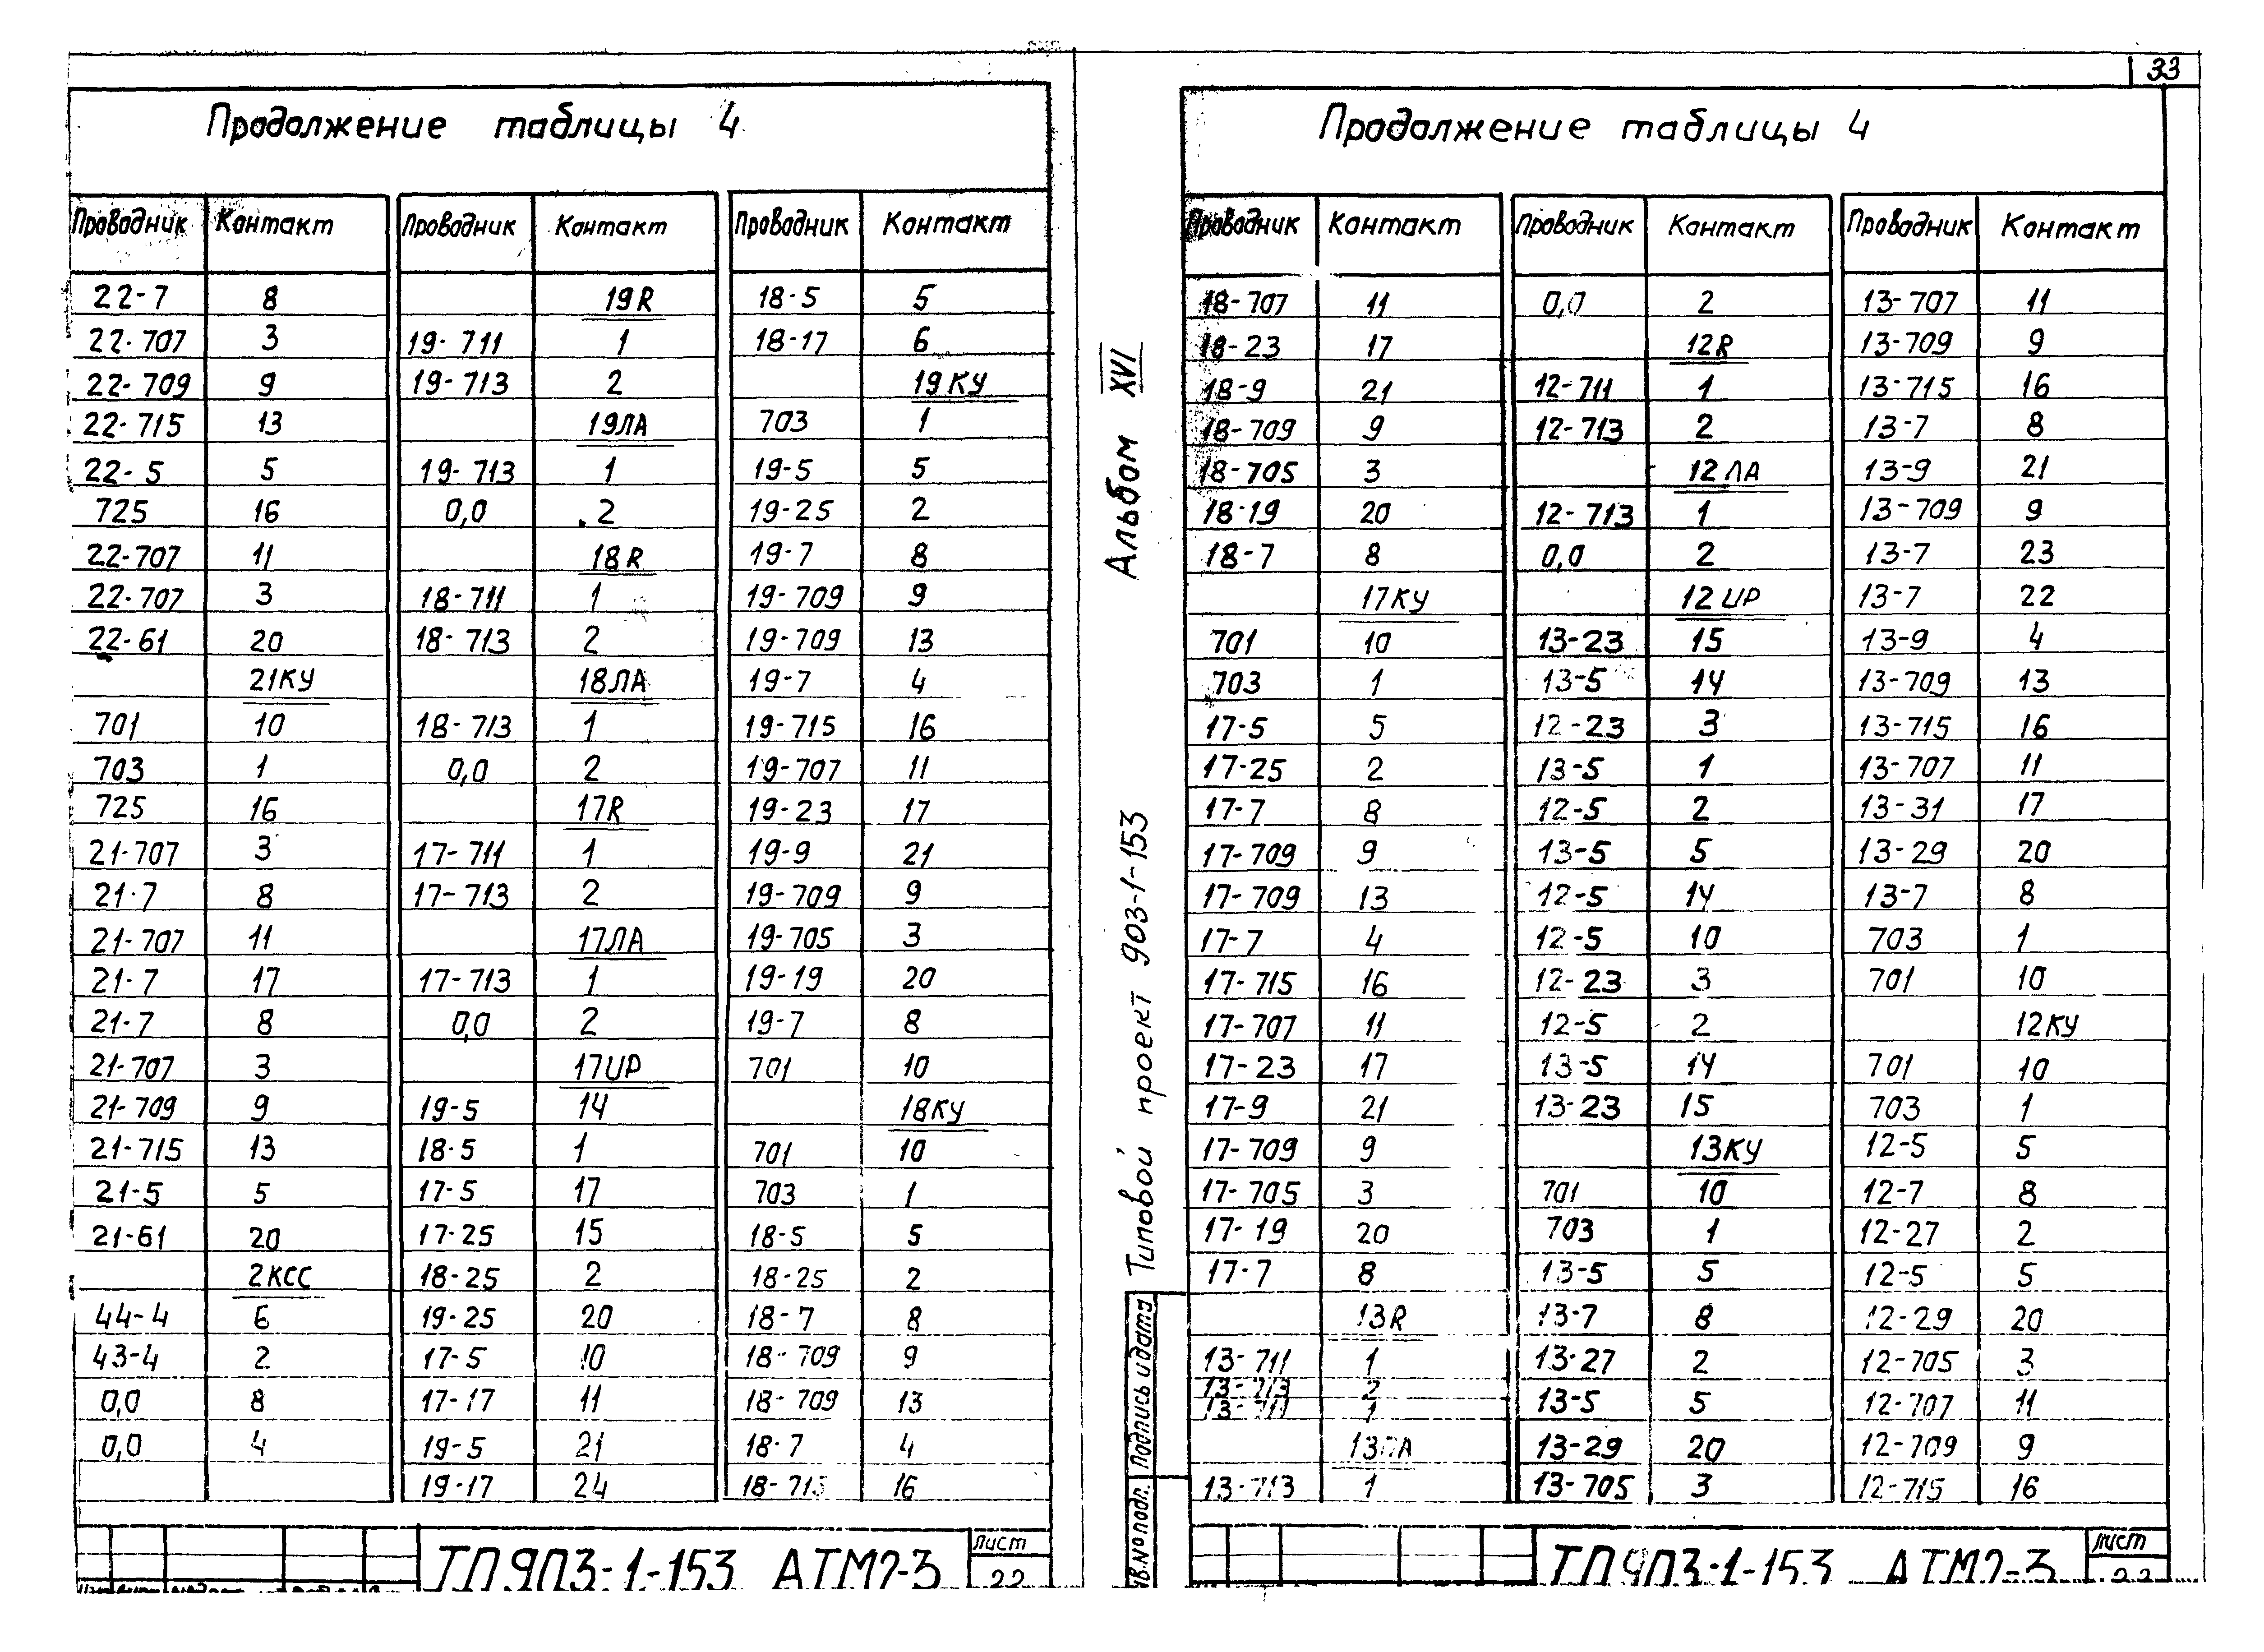 33
Продолжение таблицы 4
Проводник Контакт Проводник Контакт Проводник Контакт
22-7 8 19R 18-5 5
22-707 3 19-711 1 18-17 6
22-709 9 19-713 2 19КУ
22-715 13 19ЛА 703 1
22-5 5 19-713 1 19-5 5
725 16 0,0 2 19-25 2
22-707 11 18R 19-7 8
22-707 3 18-711 1 19-709 9
22-61 20 18-713 2 19-709 13
21КУ 18ЛА 19-7 4
701 10 18-713 1 19-715 16
703 1 0,0 2 19-707 11
725 16 17R 19-23 17
21-707 3 17-711 1 19-9 21
21-7 8 17-713 2 19-709 9
21-707 11 17ЛА 19-705 3
21-7 17 17-713 1 19-19 20
21-7 8 0,0 2 19-7 8
21-707 3 17UP 701 10
21-709 9 19-5 14 18КУ
21-715 13 18-5 1 701 10
21-5 5 17-5 17 703 1
21-61 20 17-25 15 18-5 5
2КСС 18-25 2 18-25 2
44-4 6 19-25 20 18-7 8
43-4 2 17-5 10 18-709 9
0,0 8 17-17 11 18-709 13
0,0 4 19-5 21 18-7 4
19-17 24 18-715 16
ТП 903-1-153 АТМ2-3
Лист
22
Альбом XVI
Типовой проект 903-1-153
Подпись и дата
Продолжение таблицы 4
Проводник Контакт Проводник Контакт Проводник Контакт
18-707 11 0,0 2 13-707 11
18-23 17 12R 13-709 9
18-9 21 12-711 1 13-715 16
18-709 9 12-713 2 13-7 8
18-705 3 12ЛА 13-9 21
18-19 20 12-713 1 13-709 9
18-7 8 0,0 2 13-7 23
17КУ 12UP 13-7 22
701 10 13-23 15 13-9 4
703 1 13-5 14 13-709 13
17-5 5 12-23 3 13-715 16
17-25 2 13-5 1 13-707 11
17-7 8 12-5 2 13-31 17
17-709 9 13-5 5 13-29 20
17-709 13 12-5 14 13-7 8
17-7 4 12-5 10 703 1
17-715 16 12-23 3 701 10
17-707 11 12-5 2 12КУ
17-23 17 13-5 14 701 10
17-9 21 13-23 15 703 1
17-709 9 13КУ 12-5 5
17-705 3 701 10 12-7 8
17-19 20 703 1 12-27 2
17-7 8 13-5 5 12-5 5
13R 13-7 8 12-29 20
13-711 1 13-27 2 12-705 3
13-713 2
13-711 1 13-5 5 12-707 11
13ЛА 13-29 20 12-709 9
13-713 1 13-705 3 12-715 16
ТП 903-1-153 АТМ2-3
Лист